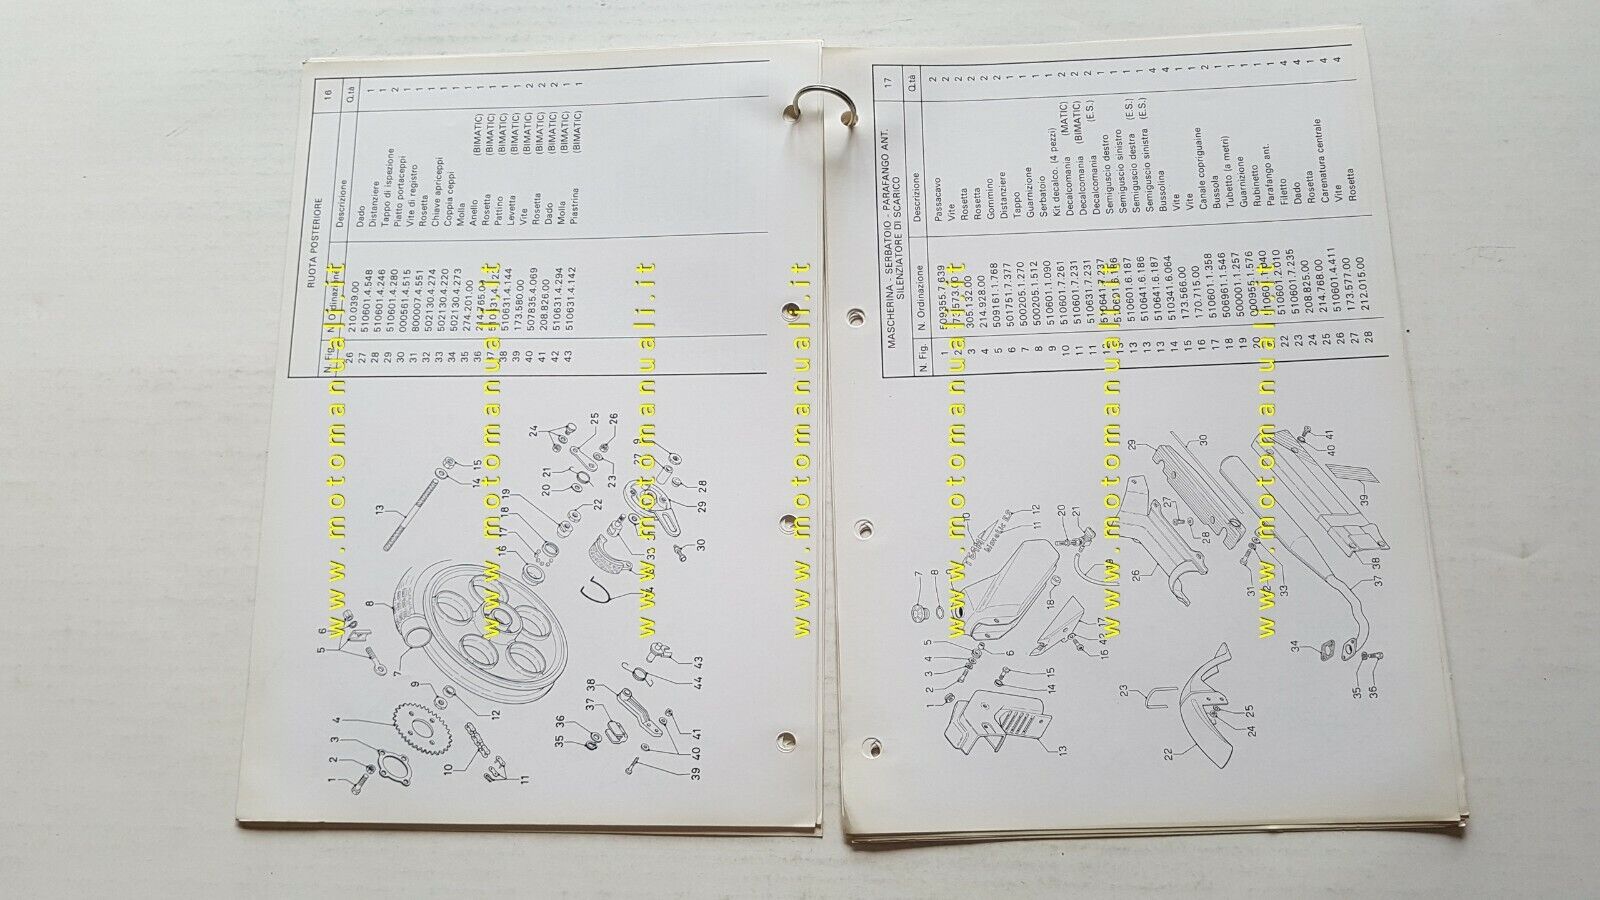 RUOTA POSTERIORE 16
N. Fig. N. Ordinazione Descrizione Q.tà
26 210.039.00 Dado 1
27 510601.4.548 Distanziere 1
28 510601.4.246 Tappo di ispezione 2
29 510601.4.280 Piatto portaceppi 1
30 000561.4.515 Vite di registro 1
31 800007.4.551 Rosetta 1
32 502130.4.274 Chiave apriceppi 1
33 502130.4.220 Coppia ceppi 1
34 502130.4.273 Molla 1
35 274.201.00 Anello (BIMATIC) 1
36 Rosetta (BIMATIC) 1
37 Pattino (BIMATIC) 1
38 510631.4.144 Levetta (BIMATIC) 1
39 173.580.00 Vite (BIMATIC) 2
40 507835.4.069 Rosetta (BIMATIC) 2
41 208.826.00 Dado (BIMATIC) 2
42 510631.4.294 Molla (BIMATIC) 1
43 510631.4.142 Piastrina (BIMATIC) 1
MASCHERINA - SERBATOIO - PARAFANGO ANT. 17
SILENZIATORE DI SCARICO
N. Fig. N. Ordinazione Descrizione Q.tà
1 509355.7.639 Passacavo 2
2 173.573.00 Vite 2
3 305.132.00 Rosetta 2
4 214.928.00 Rosetta 2
5 509161.1.768 Gommino 2
6 501751.7.377 Distanziere 2
7 500205.1.270 Tappo 1
8 500205.1.512 Guarnizione 1
9 510601.1.090 Serbatoio 1
10 510601.7.261 Kit decalco. (4 pezzi) 1
11 510601.7.231 Decalcomania (MATIC) 2
11 510631.7.231 Decalcomania (BIMATIC) 2
12 510641.7.237 Decalcomania (E.S.) 2
13 510601.6.186 Semiguscio destro 1
13 510601.6.187 Semiguscio sinistro 1
13 510641.6.186 Semiguscio destra (E.S.) 1
13 510641.6.187 Semiguscio sinistra (E.S.) 1
14 510341.6.064 Bussolina 4
15 173.566.00 Vite 4
16 170.715.00 Vite 1
17 510601.1.358 Canale copriguaine 1
18 500961.1.546 Bussola 2
19 500001.1.257 Tubetto (a metri) 1
20 000955.1.576 Guarnizione 1
510601.1.040 Rubinetto 1
22 510601.2.010 Parafango ant. 1
23 510601.7.235 Filetto 1
24 208.825.00 Dado 4
25 214.768.00 Rosetta 4
26 510601.4.411 Carenatura centrale 1
27 173.577.00 Vite 4
28 212.015.00 Rosetta 4
www.motomanuali.it
www.motomanuali.it
www.motomanuali.it
www.motomanuali.it
www.motomanuali.it
www.motomanuali.it
www.motomanuali.it